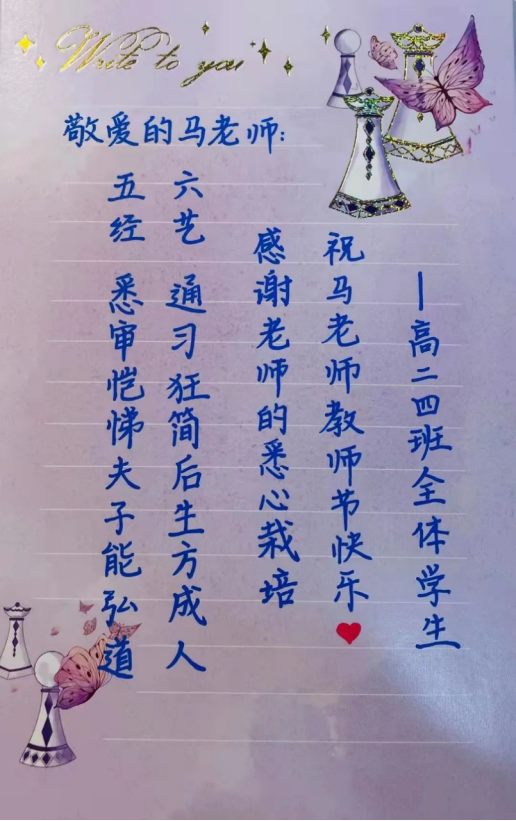 Write to you
敬爱的马老师:
五经 悉审恺悌夫子能弘道
六艺 通习狂简后生方成人
感谢老师的悉心栽培
祝马老师教师节快乐
—高二四班全体学生